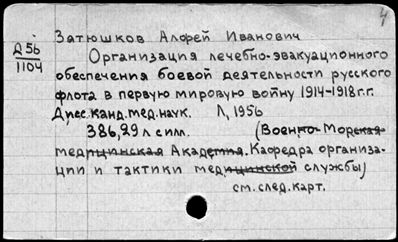 4
Затюшков Алфей Иванович
Д56
1104
Организация лечебно-эвакуационного
обеспечения боевой деятельности русского
флота в первую мировую войну 1914-1918 г.г.
Дисс. канд. мед. наук. Л, 1956
386, 29 л с илл. (Военно-Морская
медицинская Академия. Кафедра организа-
ции и тактики медицинской службы)
см. след. карт.